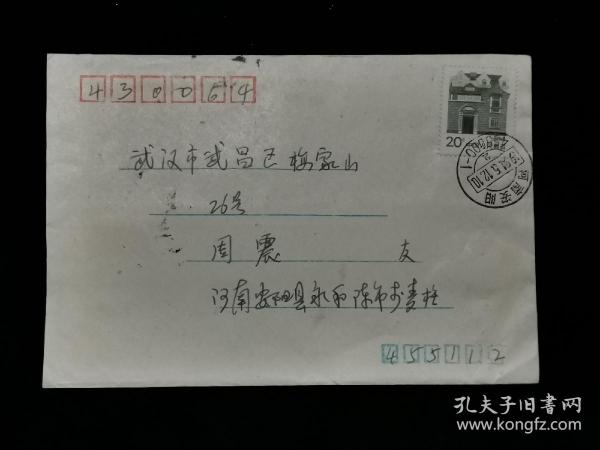 430064
20分
武汉市武昌区梅家山
26号
周震 友
河南安阳县永和陈布
455112
河南 安阳
孔夫子旧书网
www.kongfz.com